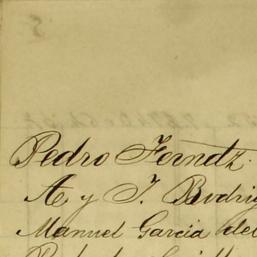 Pedro Ferndz.
A. y J. Rodrig
Manuel Garcia del